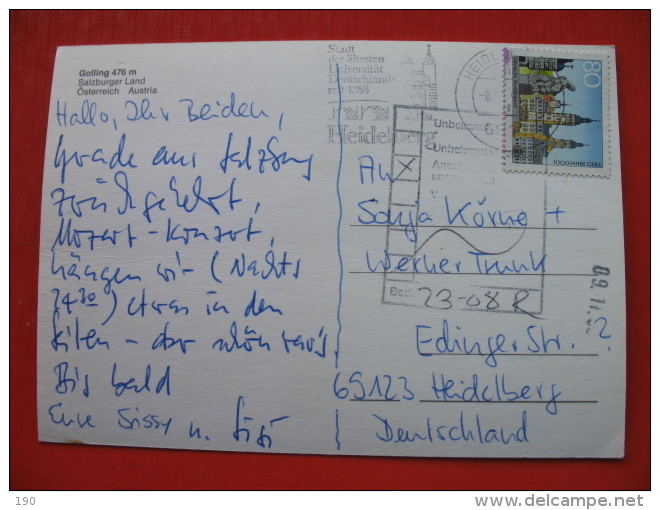 Golling 476 m
Salzburger Land
Österreich Austria
Hallo, Ihr Beiden,
Grade aus Salzburg
zurückgekehrt,
Mozart-Konzert,
hängen wir (Nachts
24³⁰) etwas in den
Seilen - aber schön war's.
Bis bald
Eure Sissy u.
Stadt
der ältesten
Universität
Deutschlands
seit 1386
Heidelberg
HEIDEL
80
1000 JAHRE GERA
6
Unbekannt
09.11.
An
Sonja Körne +
Werner Trunk
23-08 R
Edinger Str. ?
69123 Heidelberg
Deutschland
190